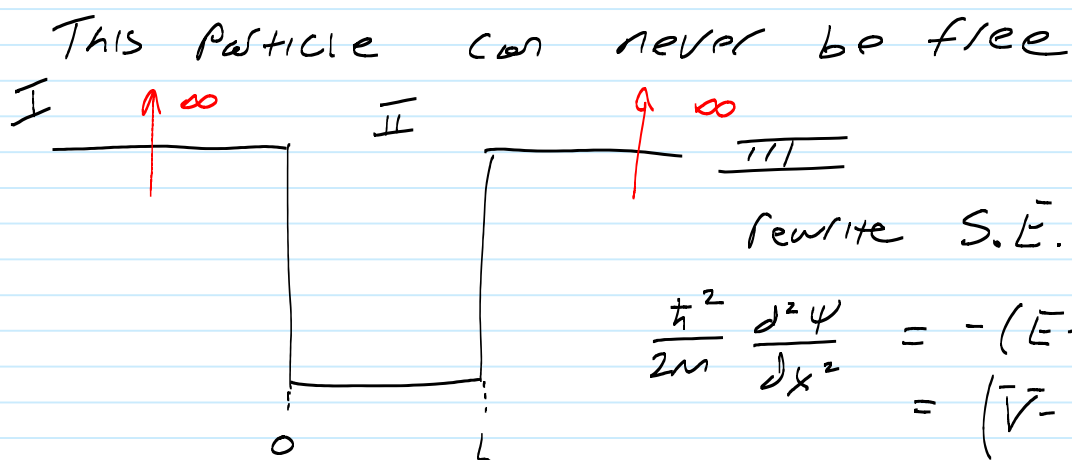 This particle can never be free
I ∞ II ∞ III
rewrite S.E.
ħ²/2m d²ψ/dx² = -(E-
= (V-
0 L